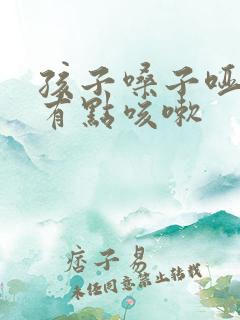 孩子嗓子哑
有點咳嗽
痞子易
未任同意禁止轉載